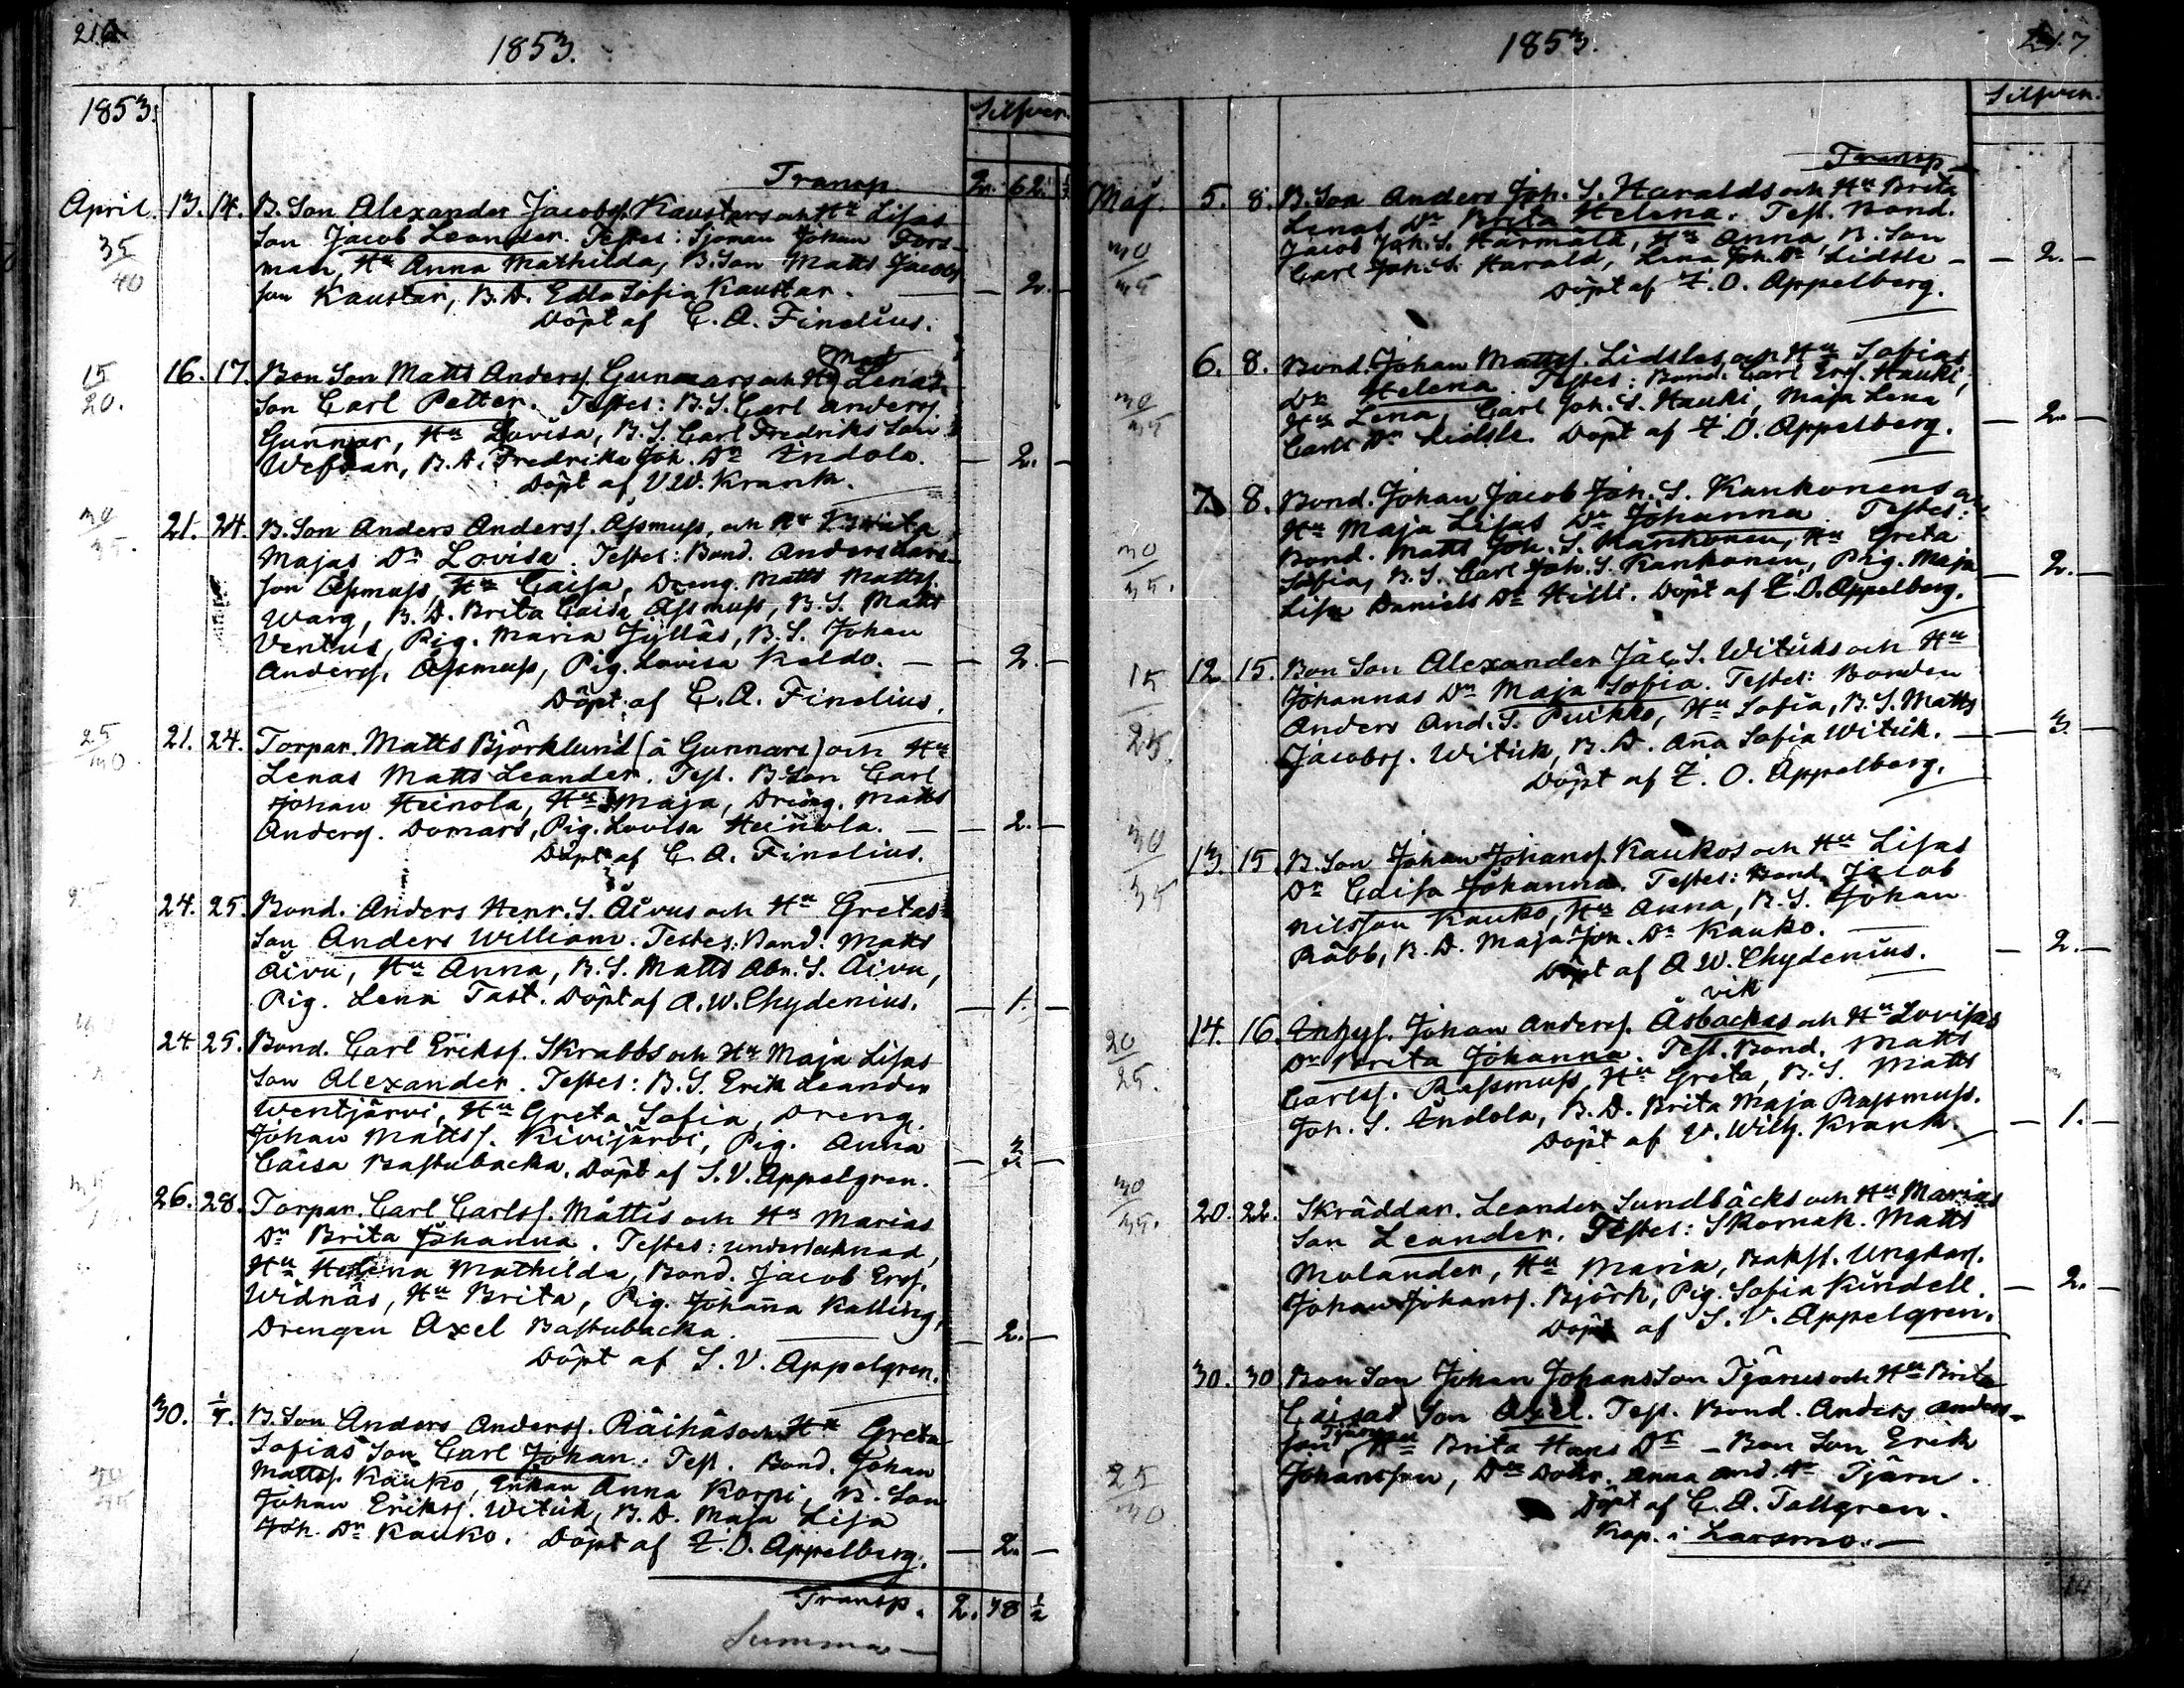 216
1853.
1853.
Silfver.
Transp. 2. 62. ½
April. 13. 14. B. Son Alexander Jacobss. Kaustars och Hu Lisas
35/40 Son Jacob Leander. Testes: Sjöman Johan Fors-
man, Hu Anna Mathilda, B. Son Matts Jacobs
son Kaustar, B. D. Edla Sofia Kaustar. — 2. —
Döpt af C. A. Finelius.
15/20. 16. 17. Bon Son Matts Anderss. Gunnars och Hu Maj Lenas
Son Carl Petter. Testes: B. S. Carl Anderss.
Gunnar, Hu Lovisa, B. S. Carl Fredriks Son
B. D. Fredrika Joh. Dr Indola. — 2. —
Döpt af V. W. Krank.
30/35. 21. 24. B. Son Anders Anderss. Assmuss, och Hu Brita
Majas Dr Lovisa. Testes: Bond. Anders Lars-
son Assmuss, Hu Caisa, Dreng. Matts Mattss.
Warg, B. D. Brita Caisa Assmuss, B. S. Matts
Ventus, Pig. Maria Jylläs, B. S. Johan
Anderss. Assmuss, Pig. Lovisa Keldo. — 2. —
Döpt af C. A. Finelius.
25/30 21. 24. Torpar. Matts Björklund (å Gunnars) och Hu
Lenas Matts Leander. Test. B. Son Carl
Johan Heinola, Hu Maja, Dreng. Matts
Anderss. Domars, Pig. Lovisa Heinola. — 2. —
Döpt af C. A. Finelius.
24. 25. Bond. Anders Henr. S. Äivus och Hu Gretas
Son Anders William. Testes: Bond. Matts
Äivu, Hu Anna, B. S. Matts Abr. S. Äivu,
Pig. Lena Tast. Döpt af A. W. Chydenius. — 1. —
24. 25. Bond. Carl Erikss. Skrabbs och Hu Maja Lisas
Son Alexander. Testes: B. S. Erik Leander
Wentjärvi, Hu Greta Sofia, Dreng.
Johan Mattss. Kivijärvi, Pig. Anna
Caisa Bastubacka. Döpt af S. V. Appelgren. — 3. —
26. 28. Torpar. Carl Carlss. Mattis och Hu Marias
Dr Brita Johanna. Testes: undertecknad,
Hu Helena Mathilda, Bond. Jacob Erss.
Widnäs, Hu Brita, Pig. Johanna Kalling,
Drengen Axel Bastubacka. — 2. —
Döpt af S. V. Appelgren.
30. B. Son Anders Anderss. Räihäs och Hu Greta
Sofias Son Carl Johan. Test. Bond. Johan
Mattss. Kauko, Enkan Anna Korpi, B. Son
Johan Erikss. Witick, B. D. Maja Lisa
Joh. Dr Kauko. Döpt af Z. O. Appelberg. — 2. —
Transp. 2. 78 ½
Summa —
217
1853.
Silfver.
Transp
Maj. 5. 8. B. Son Anders Joh. S. Haralds och Hu Brita
Lenas Dr Brita Helena. Test. Bond.
30/35 Jacob Joh. S. Härmälä, Hu Anna, B. Son
Carl Joh. S. Harald, Lena Joh. Dr Lidsle — 2. —
Döpt af Z. O. Appelberg.
6. 8. Bond. Johan Mattss. Lidsles och Hu Sofias
Dr Helena. Testes: Bond. Carl Ers. Hauki,
30/35 Hu Lena, Carl Joh. S. Hauki, Maja Lena
Carls Dr Lidsle. Döpt af Z. O. Appelberg. — 2. —
7. 8. Bond. Johan Jacob Joh. S. Kankonens och
Hu Maja Lisas Dr Johanna. Testes:
30/35. Bond. Matts Joh. S. Kankonen, Hu Greta
Sofia, B. S. Carl Joh. S. Kankonen, Pig. Maja
Lisa Daniels Dr Hilli. Döpt af Z. O. Appelberg. — 2. —
15/25. 12. 15. Bon Son Alexander Jac. S. Wituks och Hu
Johannas Dr Maja Sofia. Testes: Bonden
Anders And. S. Puikko, Hu Sofia, B. S. Matts
Jacobs. Wituk, B. D. Anna Sofia Wituk. — 3. —
Döpt af Z. O. Appelberg.
30/35 13. 15. B. Son Johan Johanss. Kaukos och Hu Lisas
Dr Caisa Johanna. Testes: Bond. Jacob
Nilsson Kauko, Hu Anna, B. S. Johan
Räbb, B. D. Maja Joh. Dr Kauko. — 2. —
Döpt af A. W. Chydenius.
vik
20/25. 14. 16. Inhys. Johan Anderss. Åsbackas och Hu Lovisas
Dr Brita Johanna. Test. Bond. Matts
Carlss. Rassmuss, Hu Greta, B. S. Matts
Joh. S. Indola, B. D. Brita Maja Rassmuss. — 1. —
Döpt af V. Wilh. Krank.
30/35. 20. 22. Skräddar. Leander Sundbäcks och Hu Marias
Son Leander. Testes: Skomak. Matts
Molander, Hu Maria, Ungkars.
Johan Johanss. Björk, Pig. Sofia Kundell. — 2. —
Döpt af S. V. Appelgren.
30. 30 Bon Son Johan Johans Son Tjärus och Hu Brita
Caisas Son Axel. Test. Bond. Anders Anders-
son Hu Brita Hans Dr — Bon Son Erik
25/30 Johansson, Anna And. Dr Tjäru.
Döpt af C. A. Tallgren.
Kap. i Larsmo. —